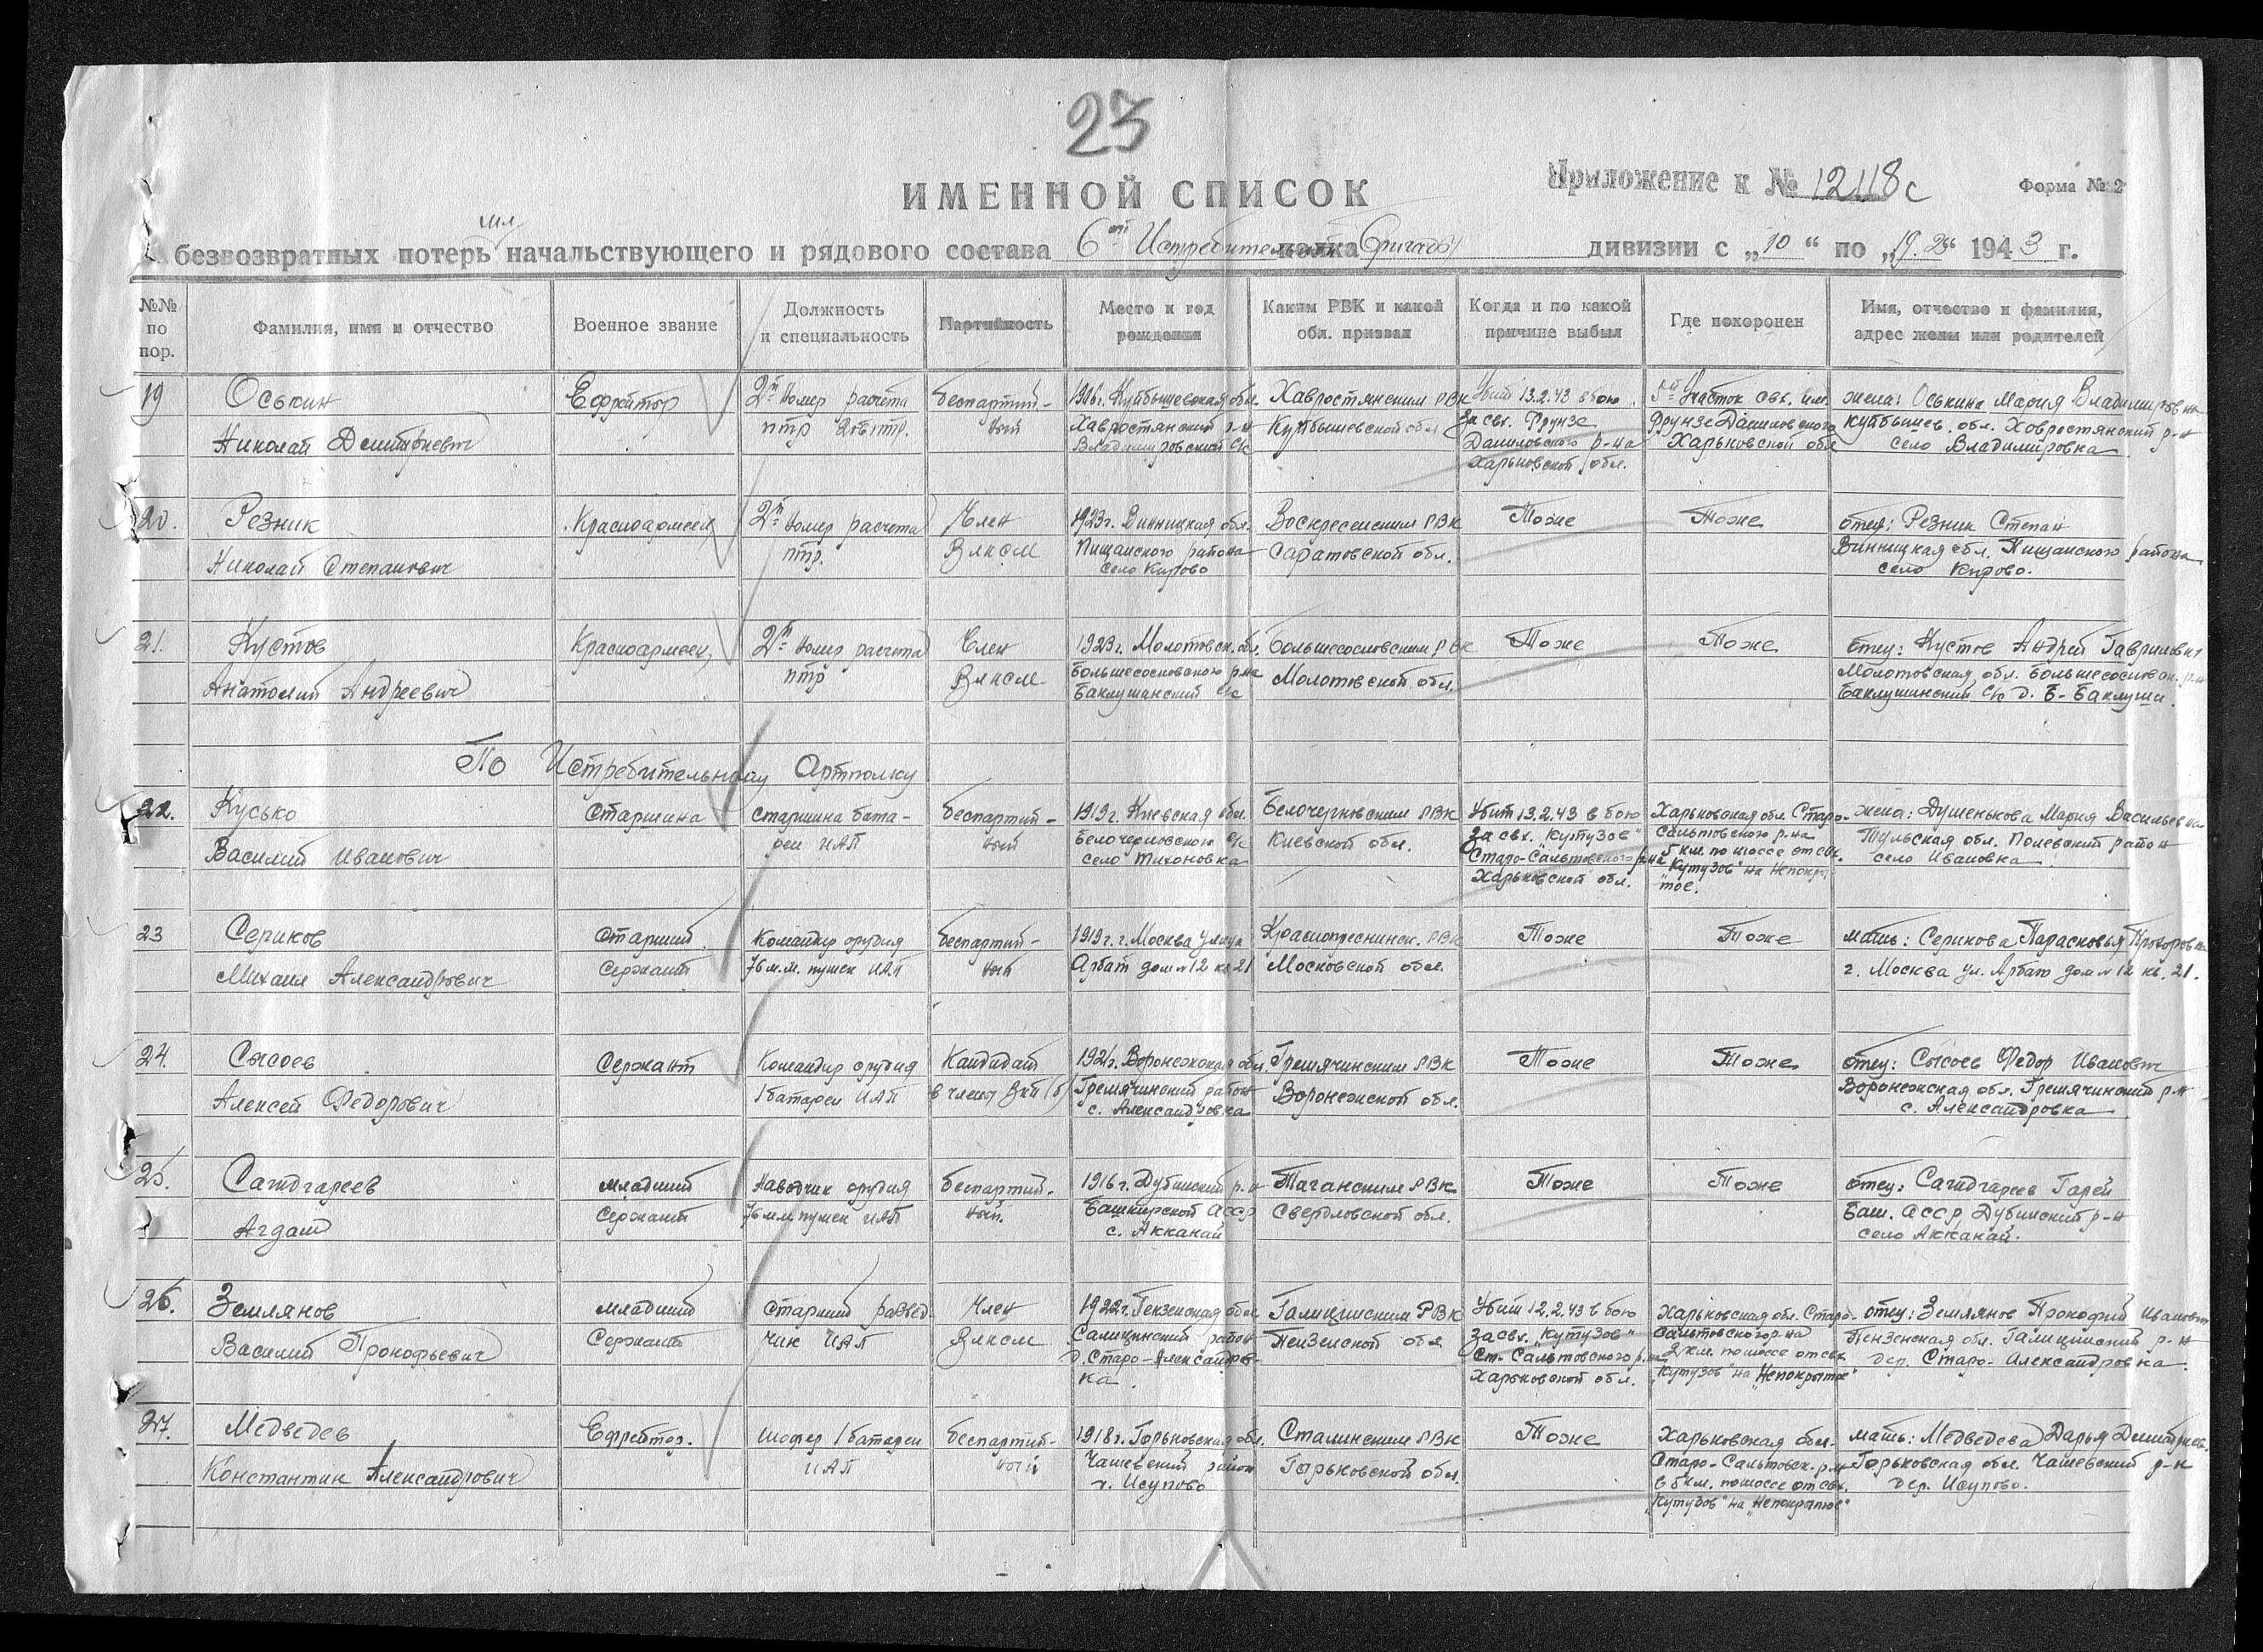 23
ИМЕННОЙ СПИСОК
Приложение к № 12118с
Форма № 2
мл
безвозвратных потерь начальствующего и рядового состава 6ой Истребительной полка Бригады дивизии с „10“ по „19.2“ 1943 г.
№№ по пор.
Фамилия, имя и отчество
Военное звание
Должность и специальность
Партийность
Место и год рождения
Каким РВК и какой обл. призван
Когда и по какой причине выбыл
Где похоронен
Имя, отчество и фамилия, адрес жены или родителей
19
Оськин
Николай Дмитриевич
Ефрейтор
2й номер расчета
птр
беспартий-
ный
1916г. Куйбышевская обл.
Хавростянский р-н
Владимировский с/с
Хавростянским РВК
Куйбышевской обл
Убит 13.2.43 в бою
за свх. Фрунзе
Даниловского р-на
Харьковской обл.
Участок свх. им.
Фрунзе Даниловского
Харьковской обл
жена: Оськина Мария Владимировна
Куйбышев. обл. Ховростянский р-н
село Владимировка
20.
Резник
Николай Степанович
Красноармеец
2й номер расчета
птр.
Член
ВЛКСМ
1923г. Винницкая обл.
Пищанского района
село Кирово
Воскресенским РВК
Саратовской обл.
Тоже
Тоже
отец: Резник Степан
Винницкая обл. Пищанского района
село Кирово.
21.
Кустов
Анатолий Андреевич
Красноармеец
2й номер расчета
птр
Член
ВЛКСМ
1923г. Молотовск. обл.
Большесосновского р-на
Баклушанский с/с
Большесосновским РВК
Молотовской обл.
Тоже
Тоже
отец: Кустов Андрей Гаврилович
Молотовская обл. Большесосновск. р-н
Баклушинский с/с д. Б-Баклуши.
По Истребительному Артполку
22.
Кусько
Василий Иванович
Старшина
старшина бата-
реи ИАП
беспартий-
ный
1919г. Киевская обл.
Белочерковского с/с
село Тихоновка
Белочерковским РВК
Киевской обл.
Убит 13.2.43 в бою
за свх. "Кутузов"
Старо-Салтовского р-на
Харьковской обл.
Харьковская обл. Старо-
Сальтовского р-на
5 км. по шоссе от свх.
"Кутузов" на Непокры-
тое.
жена: Душенькова Мария Васильевна
Тульская обл. Полевский район
село Ивановка
23
Сериков
Михаил Александрович
Старший
Сержант
Командир орудия
76 м.м. пушек ИАП
беспартий-
ный
1919г. г. Москва улица
Арбат дом №12 кв 21
Краснопреснинск. РВК
Московской обл.
Тоже
Тоже
мать: Серикова Парасковья Прохоровна
г. Москва ул. Арбат дом № 12 кв. 21.
24.
Сысоев
Алексей Федорович
Сержант
Командир орудия
1 батареи ИАП
Кандидат
в члены ВКП(б)
1921г. Воронежская обл.
Гремячинский район
с. Александровка
Гремячинским РВК
Воронежской обл.
Тоже
Тоже
отец: Сысоев Федор Иванович
Воронежская обл. Гремячинский р-н
с. Александровка
25.
Сагидгареев
Агдам
младший
Сержант
Наводчик орудия
76 мм. пушек ИАП
беспартий-
ный.
1916г. Дубинский р-н
Башкирской АССР
с. Акканай
Таганским РВК
Свердловской обл.
Тоже
Тоже
отец: Сагидгареев Гарей
Баш. АССР Дубинский р-н
село Акканай.
26.
Землянов
Василий Прокофьевич
младший
Сержант
Старший развед-
чик ИАП
Член
ВЛКСМ
1922г. Пензенская обл
Салицинский район
д. Старо-Александров-
ка
Галицинским РВК
Пензенской обл
Убит 12.2.43 в бою
за свх. "Кутузов"
Ст-Сальтовского р-на
Харьковской обл.
Харьковская обл. Старо-
Сальтовского р-на
2 км. по шоссе от свх
"Кутузов" на "Непокрытое"
отец: Землянов Прокофий Иванович
Пензенская обл. Галицинский р-н
дер. Старо-Александровка.
27.
Медведев
Константин Александрович
Ефрейтор.
шофер 1 батареи
ИАП
беспартий-
ный
1918г. Горьковская обл.
Чашевский район
д. Исупово
Сталинским РВК
Горьковской обл.
Тоже
Харьковская обл.
Старо-Сальтовск. р-н
в 5 км. по шоссе от свх.
"Кутузов" на "Непокрытое"
мать: Медведева Дарья Дмитриев.
Горьковская обл. Чашевский р-н
дер. Исупово.